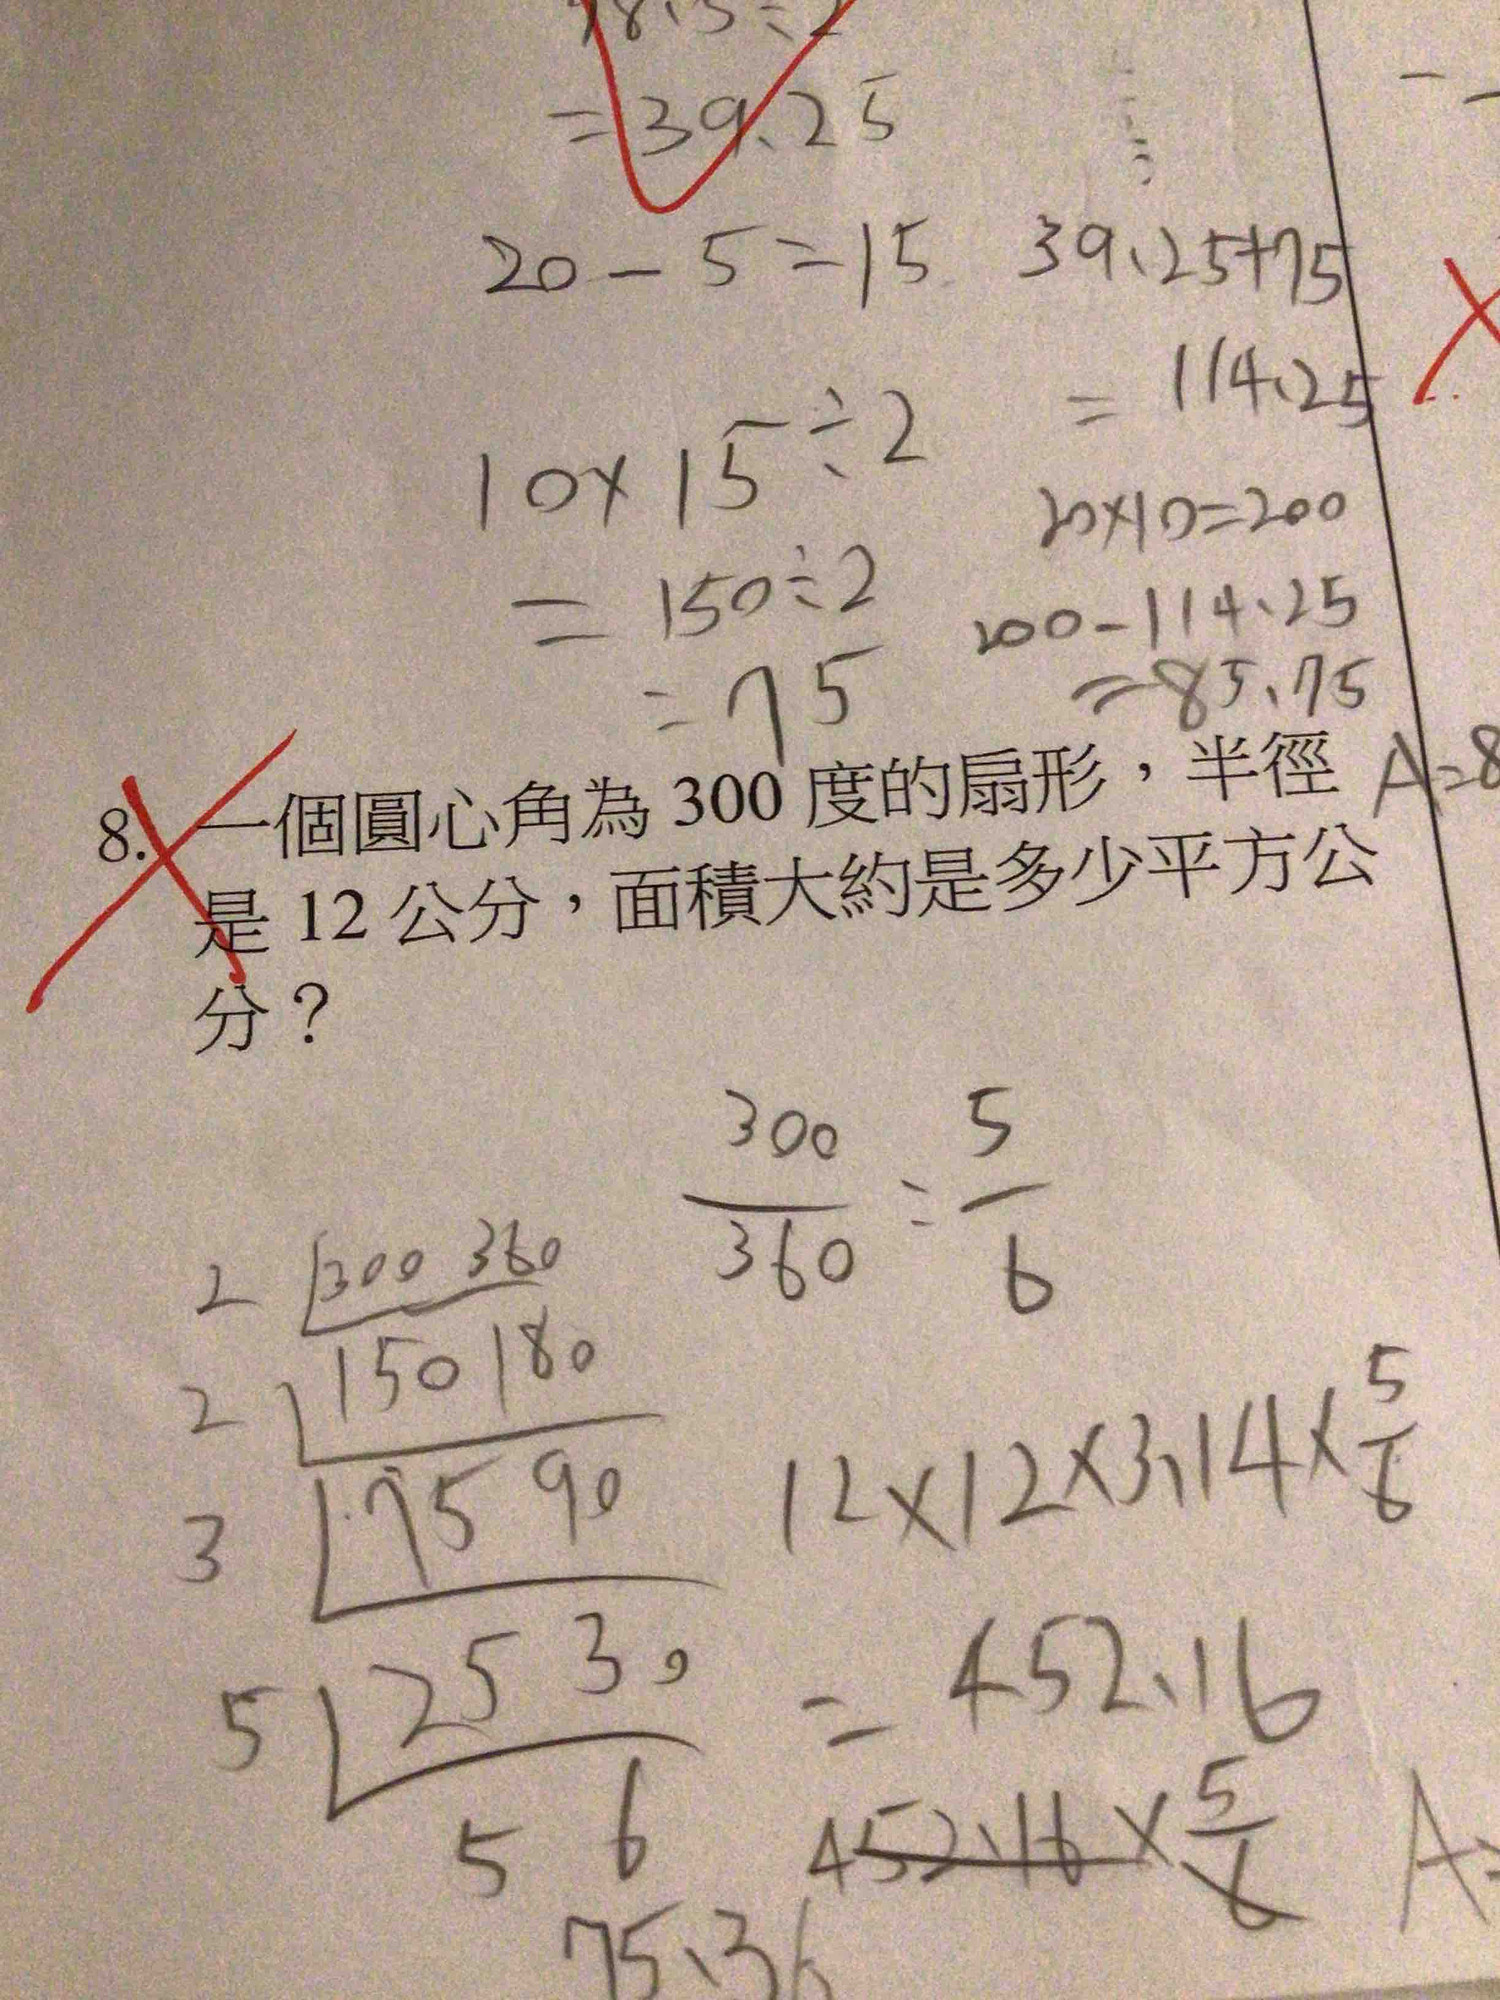 78.5÷2
=39.25
20-5=15
10×15÷2
=150÷2
=75
39.25+75
=114.25
20×10=200
200-114.25
=85.75
A=8
8. 一個圓心角為 300 度的扇形，半徑
是 12 公分，面積大約是多少平方公
分？
300/360=5/6
2 300 360
2 150 180
3 75 90
5 25 30
5 6
12×12×3.14×5/6
=452.16
452.16×5/6
A=
75.36